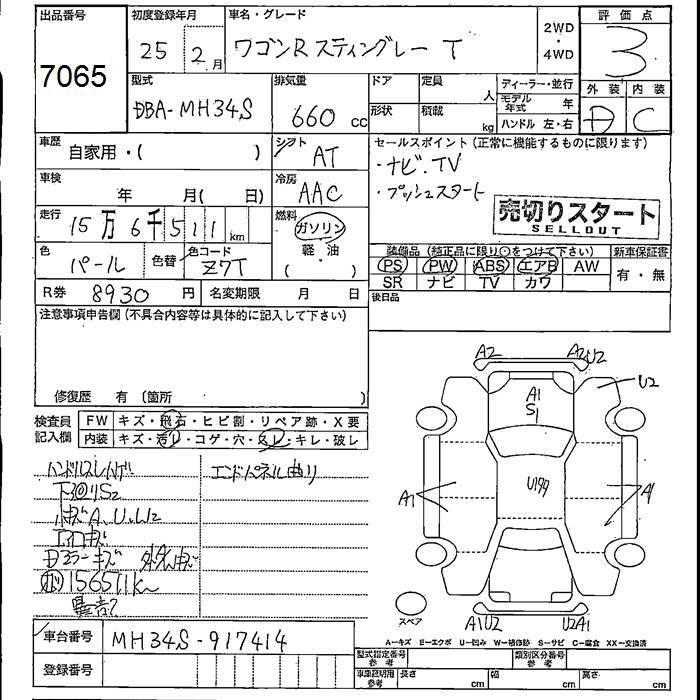 出品番号
7065
初度登録年月
25年2月
車名・グレード
ワゴンR スティングレー T
2WD
・
4WD
評価点
3
型式
DBA-MH34S
排気量
660 cc
ドア
定員
人
形状
積載
kg
ディーラー・並行
モデル年式 年
ハンドル 左・右
外装
内装
D
C
車歴
自家用・( )
シフト
AT
セールスポイント(正常に機能するものに限ります)
・ナビ.TV
・プッシュスタート
車検
年 月( 日)
冷房
AAC
売切りスタート
SELLOUT
走行
15万6千511km
燃料
ガソリン
軽・油
( )
装備品(純正品に限り○をつけて下さい)
新車保証書
PS PW ABS エアB AW
SR ナビ TV カワ
有・無
色
パール
色替
色コード
Z7T
後日品
R券
8930円
名変期限 月 日
注意事項申告欄(不具合内容等は具体的に記入して下さい)
修復歴 有 〔箇所 〕
検査員記入欄
FW キズ・飛石・ヒビ割・リペア跡・X要
内装 キズ・汚レ・コゲ・穴・スレ・キレ・破レ
ハンドルスレハゲ
エンドパネル曲り
下回りS2
エアロキズ
Dミラーキズ
156511K
異音?
A2
A2U2
U2
A1
S1
U199
A1
A1
A1U2
U2A1
スペア
A-キズ E-エクボ U-凹み W-補修跡 S-サビ C-腐食 XX-交換済
車台番号
MH34S-917414
登録番号
型式指定番号参考
類別区分番号参考
車庫証明用参考
長さ cm
幅 cm
高さ cm